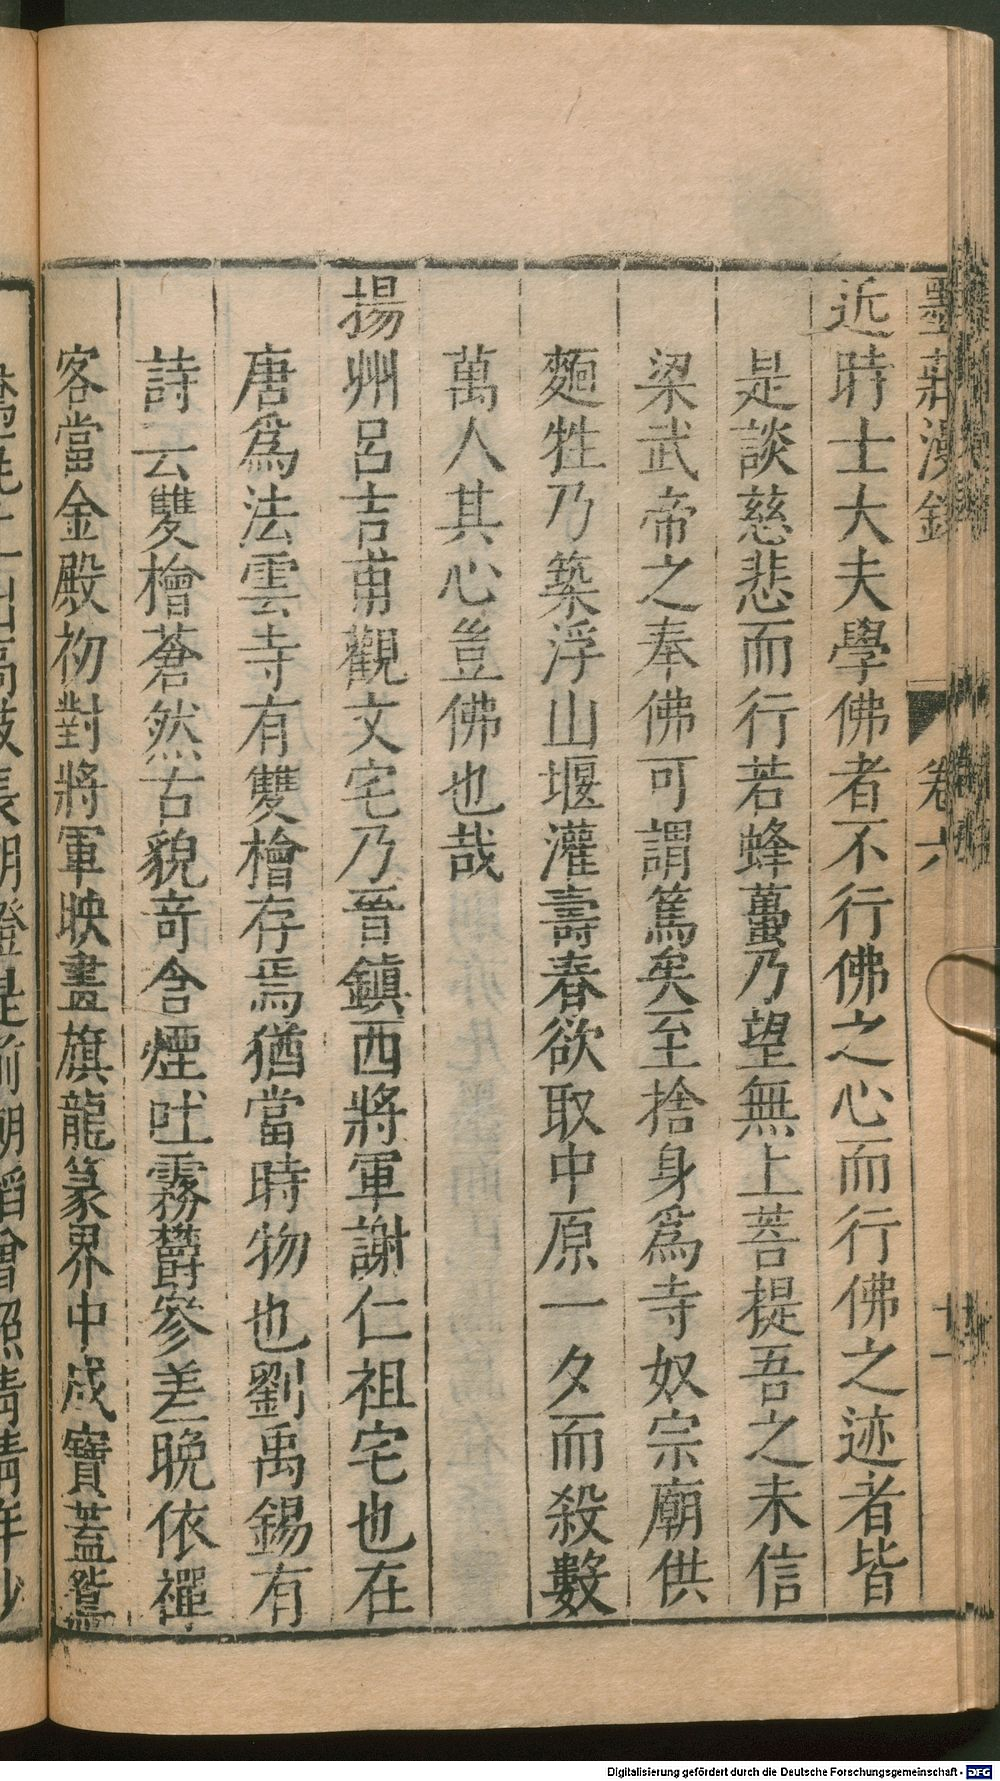 墨莊漫錄 卷六 十一
近時士大夫學佛者不行佛之心而行佛之迹者皆
是談慈悲而行若蜂蠆乃望無上菩提吾之未信
梁武帝之奉佛可謂篤矣至捨身爲寺奴宗廟供
麵牲乃築浮山堰灌壽春欲取中原一夕而殺數
萬人其心豈佛也哉
揚州呂吉甫觀文宅乃晉鎮西將軍謝仁祖宅也在
唐爲法雲寺有雙檜存焉猶當時物也劉禹錫有
詩云雙檜蒼然古貌奇含煙吐霧鬱參差晚依禪
客當金殿初對將軍映畫旗龍篆界中成寶蓋鴛
Digitalisierung gefördert durch die Deutsche Forschungsgemeinschaft - DFG